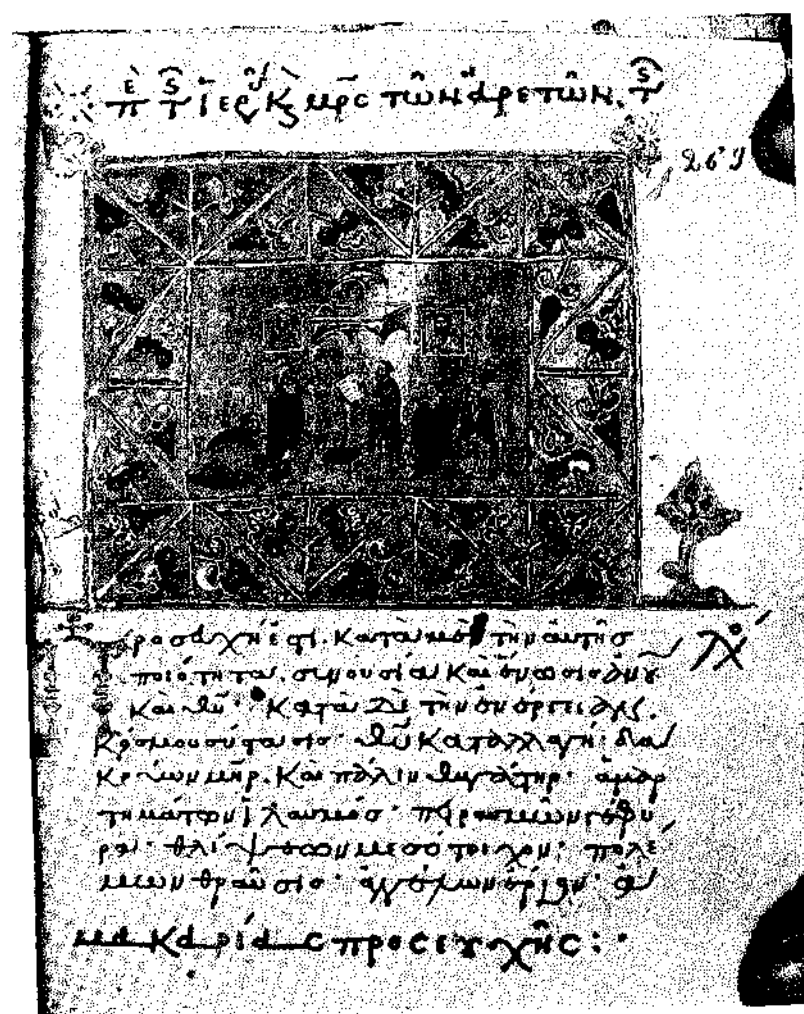 πε τ ἱερ κ μρ̅ς τῶν ἀρετῶν. τ
προσευχή ἐστι. κατὰ μὲν τὴν αὐτῆς
ποιότητα. συνουσία καὶ ἕνωσις ἀνου
καὶ θυ· κατὰ δὲ τὴν ἐνέργειαν.
κόσμου σύστασις· θυ καταλλαγή· δα
κρύων μηρ. καὶ πάλιν θυγάτηρ· ἁμαρ
τημάτων ἱλασμός· πειρασμῶν γέφυ
ρα· θλίψεων μεσότοιχον· πολέ
μων θραῦσις· ἀγγέλων ἔργον· ἀ
μακαρίας προσευχῆς:·